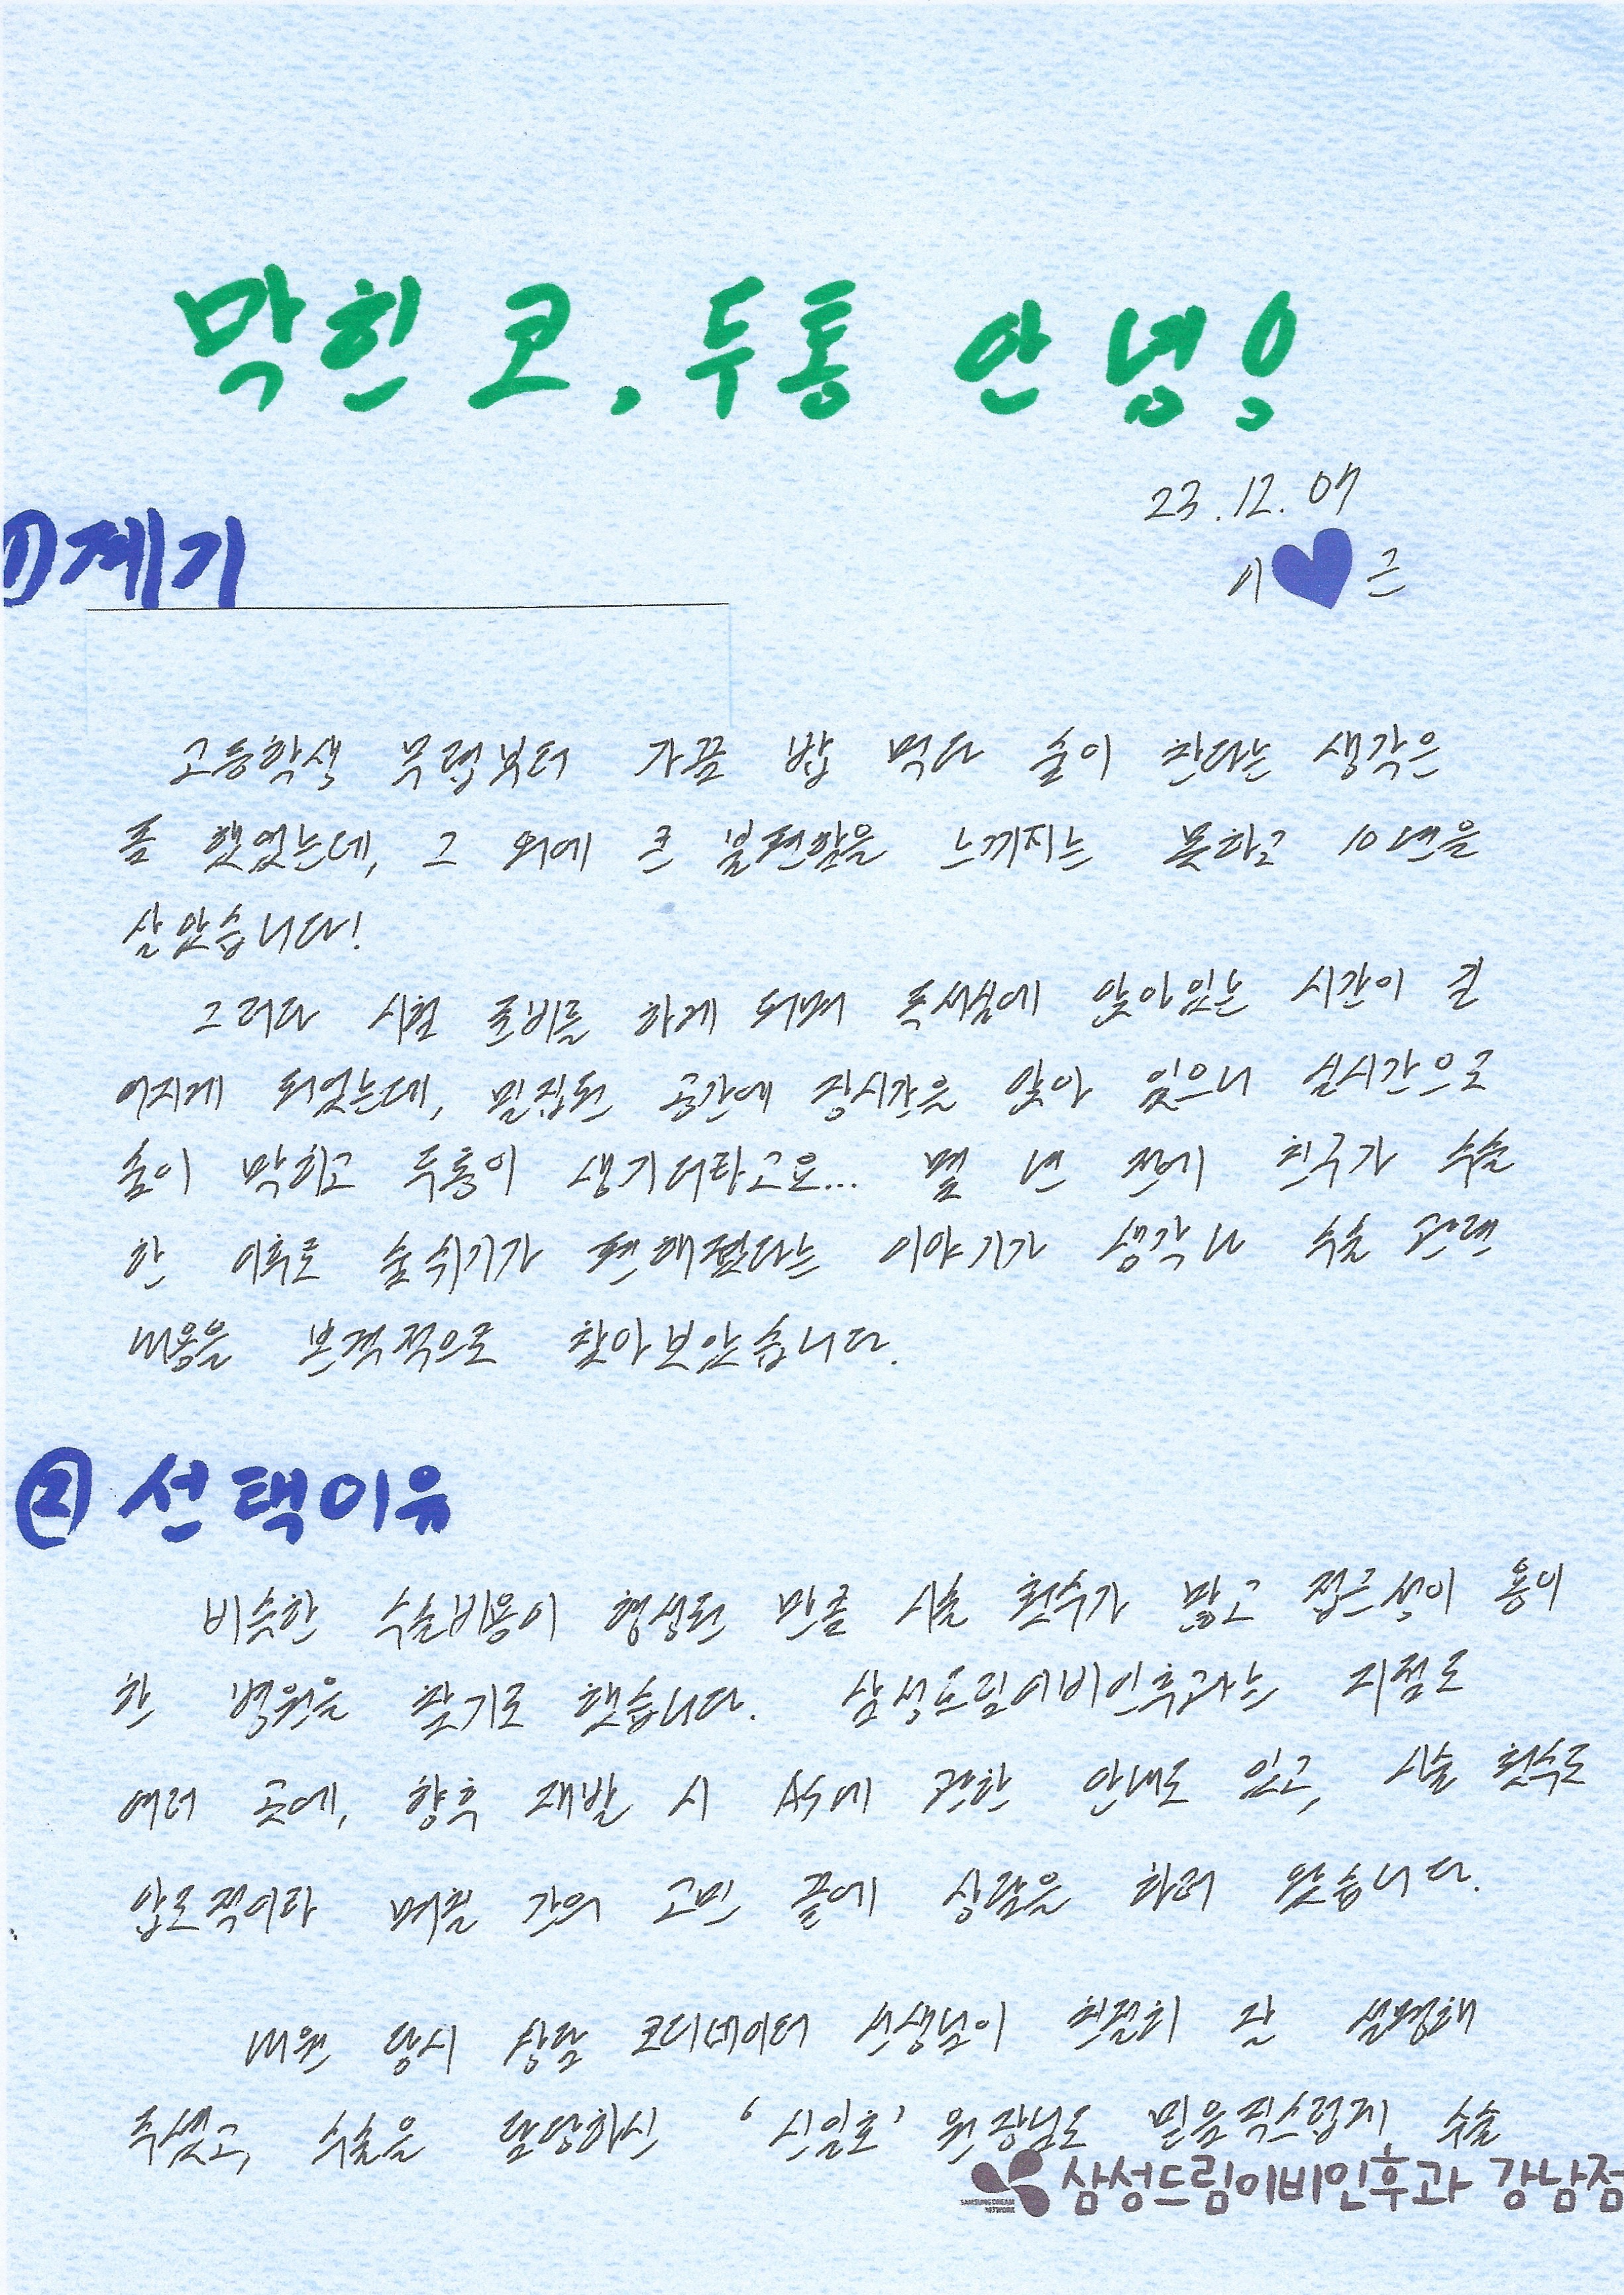 막힌 코, 두통 안녕!
23.12.07
이 근
① 계기
고등학생 무렵부터 가끔 밥 먹다 숨이 찬다는 생각은
좀 했었는데, 그 외에 큰 불편함을 느끼지는 못하고 10년을
살았습니다!
그러다 시험 준비를 하게 되며 독서실에 앉아있는 시간이 길
어지게 되었는데, 밀집된 공간에 장시간을 앉아 있으니 실시간으로
숨이 막히고 두통이 생기더라고요... 몇 년 전에 친구가 수술
한 이후로 숨쉬기가 편해졌다는 이야기가 생각나 수술 관련
내용을 본격적으로 찾아보았습니다.
② 선택이유
비슷한 수술비용이 형성된 만큼 시술 횟수가 많고 접근성이 용이
한 병원을 찾기로 했습니다. 삼성드림이비인후과는 지점도
여러 곳에, 향후 재발 시 AS에 관한 안내도 있고, 시술 횟수도
압도적이라 며칠 간의 고민 끝에 상담을 하러 왔습니다.
내원 당시 상담 코디네이터 선생님이 친절히 잘 설명해
주셨고, 수술을 담당하신 '신일호' 원장님도 믿음직스럽게 수술
SAMSUNG DREAM NETWORK
삼성드림이비인후과 강남점